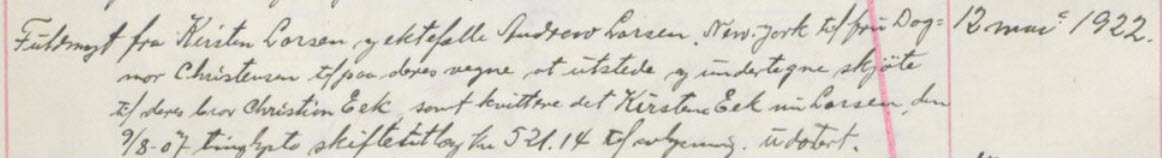 Fuldmagt fra Kirsten Larsen og ektefælle Andrew Larsen, New-York til fru Dag= 12 mai 1922.
mor Christensen til paa deres vegne at utstede og undertegne skjöte
til deres bror Christian Eek, samt kvittere det Kirstine Eek nu Larsen, den
9/8-07 tinglyste skifteutlæg kr 521.14 til avlysning. udatert.